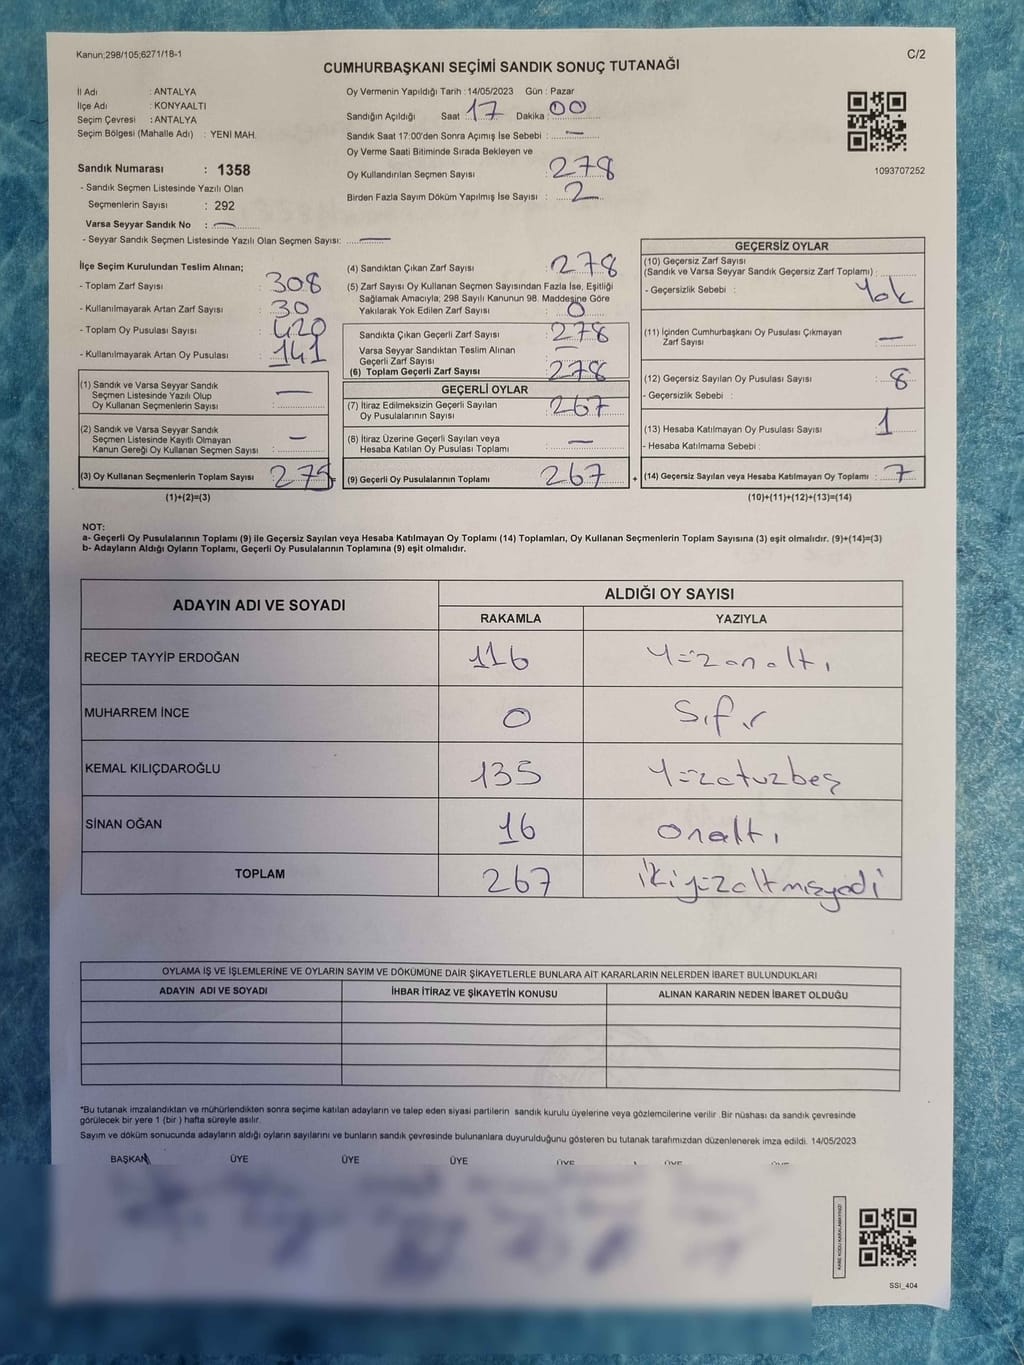 Kanun;298/105;6271/18-1
C/2
CUMHURBAŞKANI SEÇİMİ SANDIK SONUÇ TUTANAĞI
İl Adı : ANTALYA
İlçe Adı : KONYAALTI
Seçim Çevresi : ANTALYA
Seçim Bölgesi (Mahalle Adı) : YENİ MAH.
Sandık Numarası : 1358
- Sandık Seçmen Listesinde Yazılı Olan
Seçmenlerin Sayısı : 292
Varsa Seyyar Sandık No : —
- Seyyar Sandık Seçmen Listesinde Yazılı Olan Seçmen Sayısı: —
Oy Vermenin Yapıldığı Tarih : 14/05/2023 Gün : Pazar
Sandığın Açıldığı Saat : 17 Dakika : 00
Sandık Saat 17:00'den Sonra Açımış İse Sebebi : —
Oy Verme Saati Bitiminde Sırada Bekleyen ve
Oy Kullandırılan Seçmen Sayısı 278
Birden Fazla Sayım Döküm Yapılmış İse Sayısı : 2
1093707252
İlçe Seçim Kurulundan Teslim Alınan;
- Toplam Zarf Sayısı : 308
- Kullanılmayarak Artan Zarf Sayısı : 30
- Toplam Oy Pusulası Sayısı : 420
- Kullanılmayarak Artan Oy Pusulası : 141
(1) Sandık ve Varsa Seyyar Sandık
Seçmen Listesinde Yazılı Olup
Oy Kullanan Seçmenlerin Sayısı : —
(2) Sandık ve Varsa Seyyar Sandık
Seçmen Listesinde Kayıtlı Olmayan
Kanun Gereği Oy Kullanan Seçmen Sayısı : —
(3) Oy Kullanan Seçmenlerin Toplam Sayısı
(1)+(2)=(3)
(4) Sandıktan Çıkan Zarf Sayısı : 278
(5) Zarf Sayısı Oy Kullanan Seçmen Sayısından Fazla İse, Eşitliği
Sağlamak Amacıyla; 298 Sayılı Kanunun 98. Maddesine Göre
Yakılarak Yok Edilen Zarf Sayısı : 0
Sandıkta Çıkan Geçerli Zarf Sayısı : 278
Varsa Seyyar Sandıktan Teslim Alınan
Geçerli Zarf Sayısı : —
(6) Toplam Geçerli Zarf Sayısı : 278
GEÇERLİ OYLAR
(7) İtiraz Edilmeksizin Geçerli Sayılan
Oy Pusulalarının Sayısı : 267
(8) İtiraz Üzerine Geçerli Sayılan veya
Hesaba Katılan Oy Pusulası Toplamı : —
(9) Geçerli Oy Pusulalarının Toplamı : 267
+
GEÇERSİZ OYLAR
(10) Geçersiz Zarf Sayısı
(Sandık ve Varsa Seyyar Sandık Geçersiz Zarf Toplamı) :
- Geçersizlik Sebebi : Yok
(11) İçinden Cumhurbaşkanı Oy Pusulası Çıkmayan
Zarf Sayısı : —
(12) Geçersiz Sayılan Oy Pusulası Sayısı : 8
- Geçersizlik Sebebi :
(13) Hesaba Katılmayan Oy Pusulası Sayısı : 1
- Hesaba Katılmama Sebebi :
(14) Geçersiz Sayılan veya Hesaba Katılmayan Oy Toplamı : 7
(10)+(11)+(12)+(13)=(14)
NOT:
a- Geçerli Oy Pusulalarının Toplamı (9) ile Geçersiz Sayılan veya Hesaba Katılmayan Oy Toplamı (14) Toplamları, Oy Kullanan Seçmenlerin Toplam Sayısına (3) eşit olmalıdır. (9)+(14)=(3)
b- Adayların Aldığı Oyların Toplamı, Geçerli Oy Pusulalarının Toplamına (9) eşit olmalıdır.
ADAYIN ADI VE SOYADI
ALDIĞI OY SAYISI
RAKAMLA YAZIYLA
RECEP TAYYİP ERDOĞAN 116 Yüzonaltı
MUHARREM İNCE 0 Sıfır
KEMAL KILIÇDAROĞLU 135 Yüzotuzbeş
SİNAN OĞAN 16 onaltı
TOPLAM 267 ikiyüzaltmışyedi
OYLAMA İŞ VE İŞLEMLERİNE VE OYLARIN SAYIM VE DÖKÜMÜNE DAİR ŞİKAYETLERLE BUNLARA AİT KARARLARIN NELERDEN İBARET BULUNDUKLARI
ADAYIN ADI VE SOYADI İHBAR İTİRAZ VE ŞİKAYETİN KONUSU ALINAN KARARIN NEDEN İBARET OLDUĞU
*Bu tutanak imzalandıktan ve mühürlendikten sonra seçime katılan adayların ve talep eden siyasi partilerin sandık kurulu üyelerine veya gözlemcilerine verilir .Bir nüshası da sandık çevresinde
görülecek bir yere 1 (bir ) hafta süreyle asılır.
Sayım ve döküm sonucunda adayların aldığı oyların sayılarını ve bunların sandık çevresinde bulunanlara duyurulduğunu gösteren bu tutanak tarafımızdan düzenlenerek imza edildi. 14/05/2023
BAŞKAN ÜYE ÜYE ÜYE ÜYE ÜYE
SSİ_404